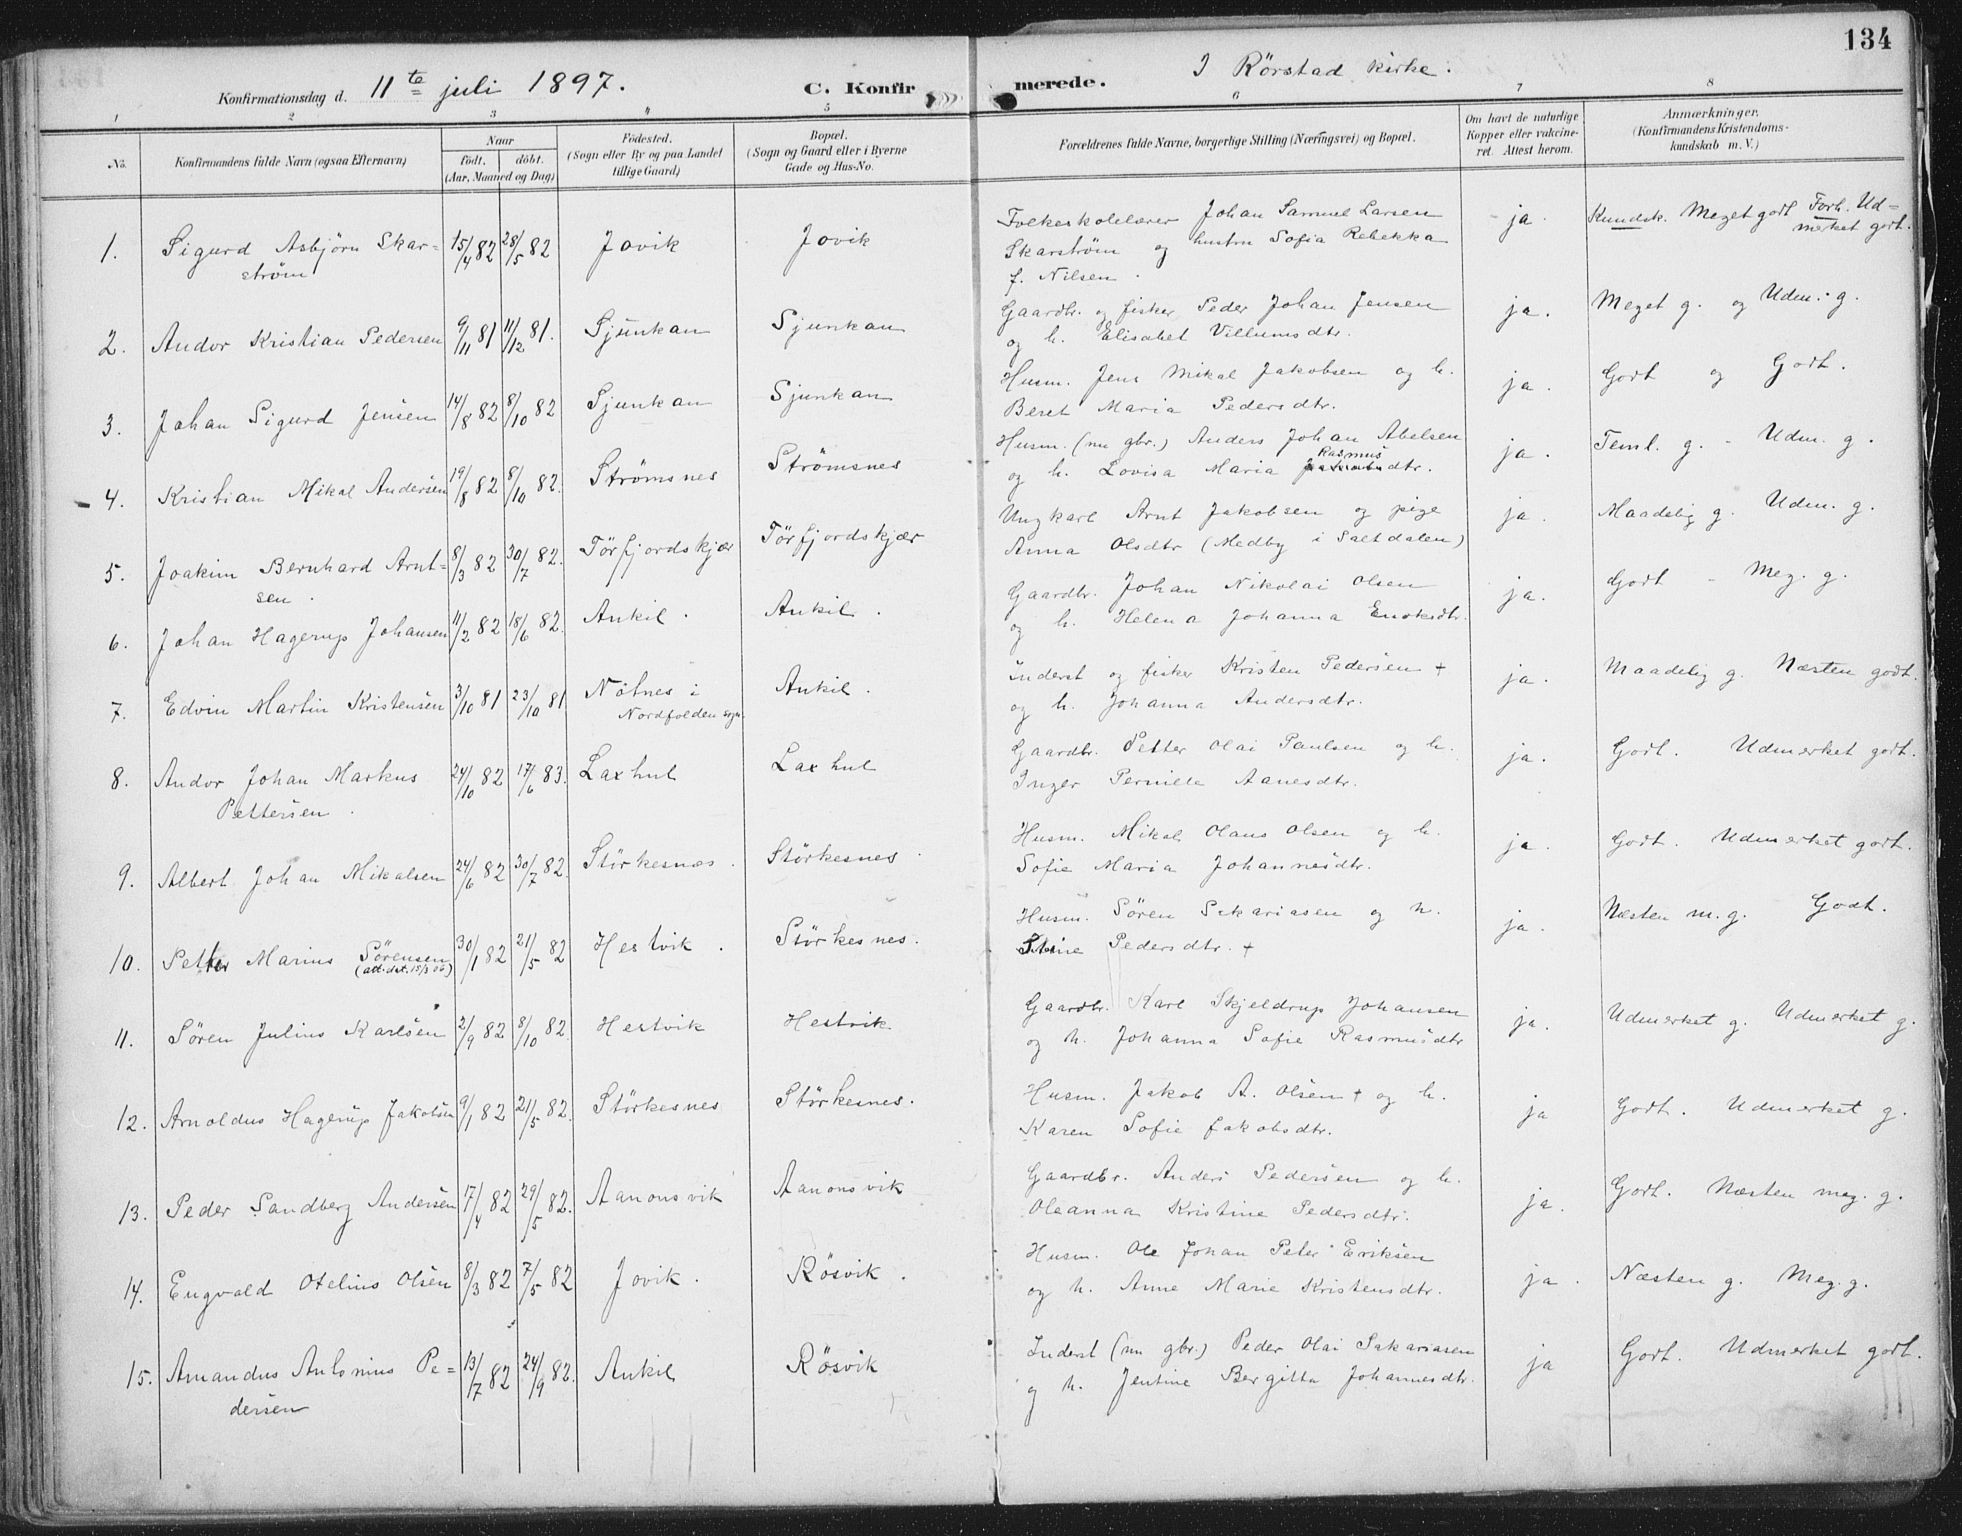 134
Konfirmationsdag d. 11te juli 1897. C. Konfirmerede. I Rörstad kirke.
1 2 3 4 5 6 7 8
No. Konfirmandens fulde Navn (ogsaa Efternavn) Naar födt. döbt. (Aar, Maaned og Dag) Födested. (Sogn eller By og paa Landet tillige Gaard) Bopæl. (Sogn og Gaard eller i Byerne Gade og Hus-No. Forældrenes fulde Navne, borgerlige Stilling (Næringsvei) og Bopæl. Om havt de naturlige Kopper eller vakcineret. Attest herom. Anmerkninger. (Konfirmandens Kristendomskundskab m. V.)
1. Sigurd Asbjörn Skarström 15/4 82 28/5 82 Jovik Jovik Folkeskolelærer Johan Samuel Larsen Skarström og hustru Sofia Rebekka f. Nilsen. ja. Kundsk. Meget godt Forh. Udmerket godt.
2. Andor Kristian Pedersen 9/11 81 11/12 81. Sjunkan Sjunkan Gaardbr. og fisker Peder Johan Jensen og h. Elisabet Villumsdtr. ja. Meget g. og Udm. g.
3. Johan Sigurd Jensen 14/8 82 8/10 82 Sjunkan Sjunkan Husm. Jens Mikal Jakobsen og h. Beret Maria Pedersdtr. ja. Godt og Godt.
4. Kristian Mikal Andersen 19/8 82 8/10 82. Strömsnes Strömsnes Husm. (nu gbr.) Anders Johan Abelsen og h. Lovisa Maria Rasmusdtr. ja. Teml. g. - Udm. g.
5. Joakim Bernhard Arntsen. 8/3 82 30/7 82. Törfjordskjær Törfjordskjær Ungkarl Arnt Jakobsen og pige Anna Olsdtr (Medby i Saltdalen) ja. Maadelig g. Udm. g.
6. Johan Hagerup Johansen 11/2 82 18/6 82. Ankil. Ankil. Gaardbr. Johan Nikolai Olsen og h. Helena Johanna Enoksdtr. ja. Godt - Meg. g.
7. Edvin Martin Kristensen 3/10 81 23/10 81 Nötnes i Nordfolden sogn. Ankil. Inderst og fisker Kristen Pedersen + og h. Johanna Andersdtr. ja. Maadelig g. Næsten godt.
8. Andor Johan Markus Pettersen. 24/10 82 17/6 83. Laxhul Laxhul Gaardbr. Petter Olai Paulsen og h. Inger Pernille Aanesdtr. ja. Godt. Udmerket godt.
9. Albert Johan Mikalsen 24/6 82 30/7 82. Störkesnæs. Störkesnes. Husm. Mikal Olaus Olsen og h. Sofie Maria Johannesdtr. ja. Godt. Udmerket godt.
10. Petter Marius Sörensen (att. dat. 15/3 06) 30/1 82 21/5 82 Hestvik. Störkesnes. Husm. Sören Sakariasen og h. Stine Pedersdtr. + ja. Næsten m. g. Godt.
11. Sören Julius Karlsen 2/9 82 8/10 82. Hestvik Hestvik. Gaardbr. Karl Skjeldrup Johansen og h. Johanna Sofie Rasmusdtr ja. Udmerket g. Udmerket g.
12. Arnoldus Hagerup Jakobsen 9/1 82 21/5 82. Störkesnes Störkesnes. Husm. Jakob A. Olsen + og h. Karen Sofie Jakobsdtr. ja Godt. Udmerket g.
13. Peder Sandberg Andersen 17/4 82 29/5 82. Aanonsvik Aanonsvik Gaardbr. Anders Pedersen og h. Oleanna Kristine Pedersdtr. ja. Godt. Næsten meg. g.
14. Engvald Otelius Olsen 8/3 82 7/5 82 Jovik. Rösvik. Husm. Ole Johan Peter Eriksen og h. Anne Marie Kristensdtr. ja. Næsten g. Meg. g.
15. Amandus Antonius Pedersen 13/7 82 24/9 82. Ankil Rösvik Inderst (nu gbr.) Peder Olai Sakariasen og h. Jentine Bergitta Johannesdtr. ja Godt. Udmerket godt.